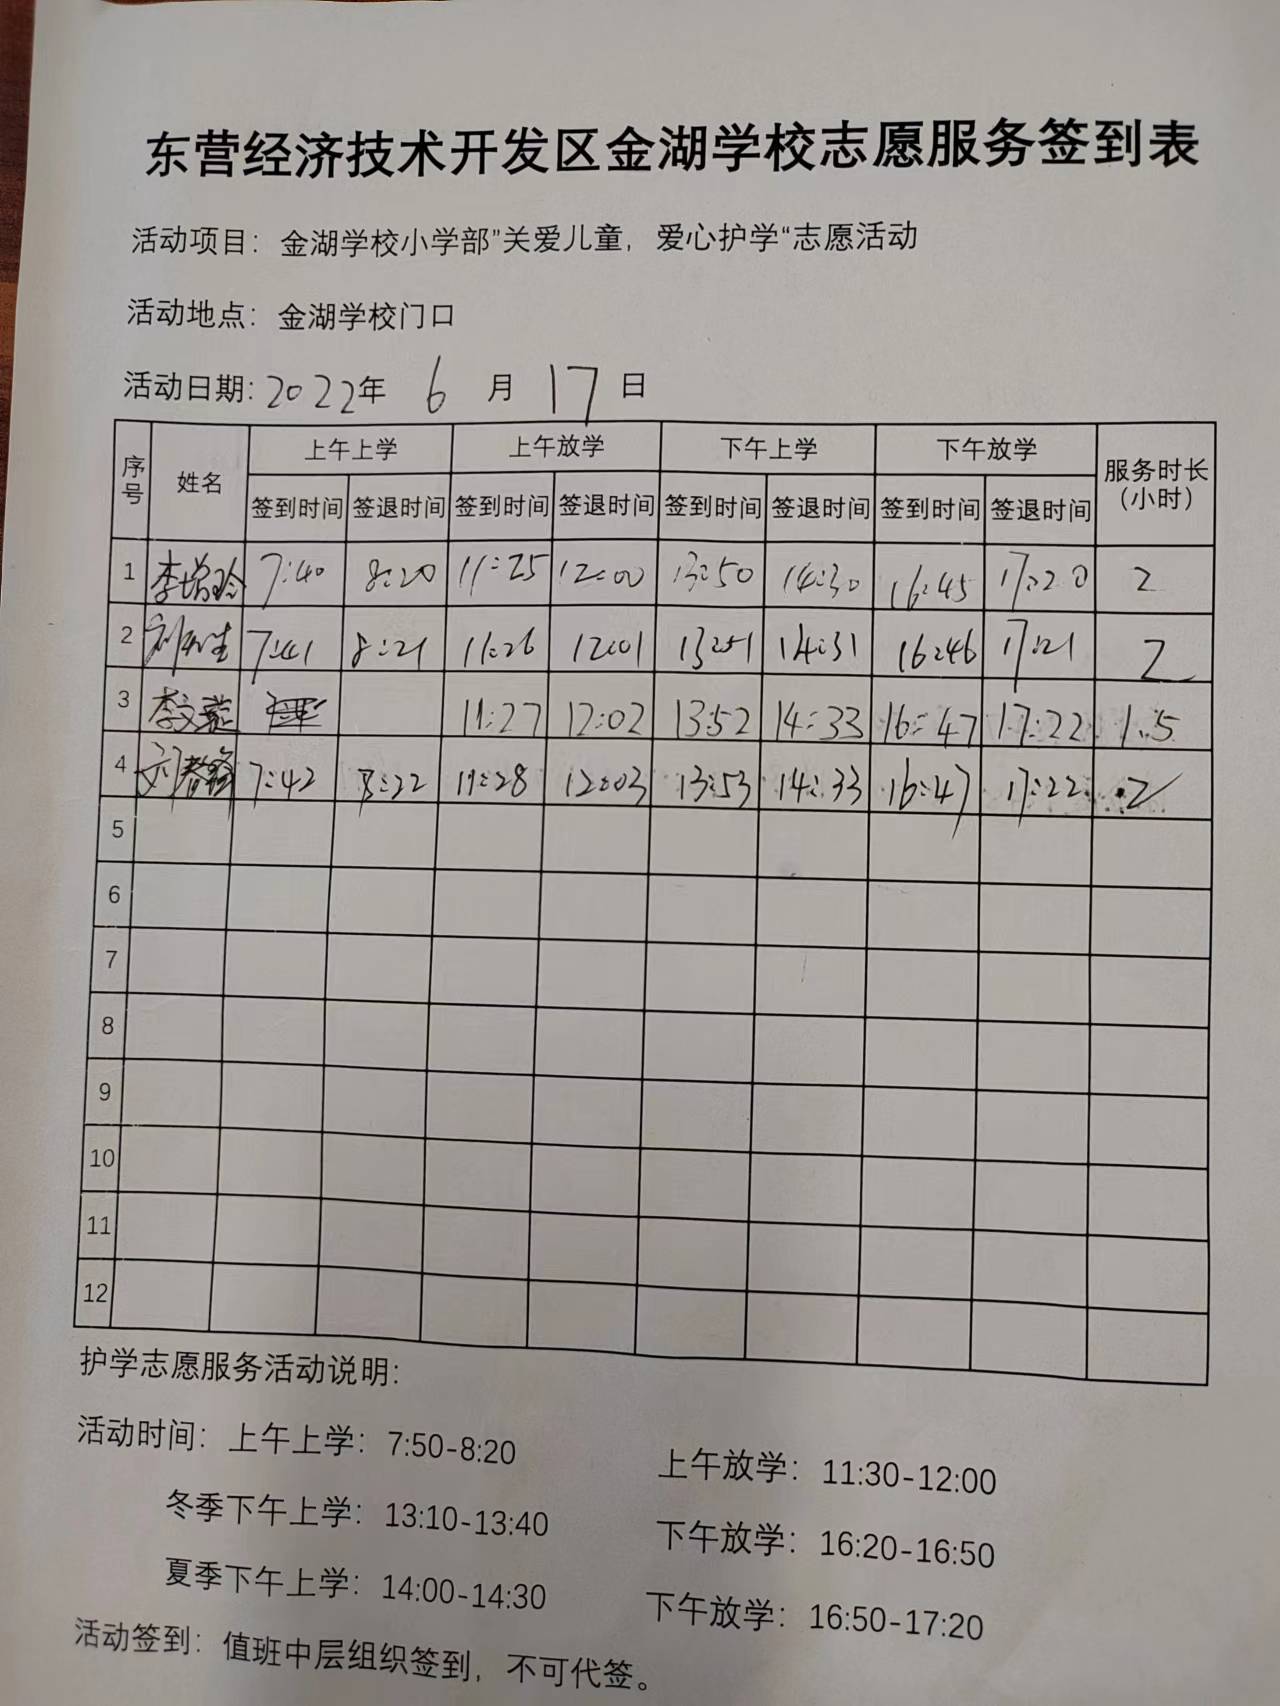 东营经济技术开发区金湖学校志愿服务签到表
活动项目：金湖学校小学部”关爱儿童，爱心护学“志愿活动
活动地点：金湖学校门口
活动日期：2022年 6 月 17 日
序号 姓名 上午上学 上午放学 下午上学 下午放学 服务时长（小时）
签到时间 签退时间 签到时间 签退时间 签到时间 签退时间 签到时间 签退时间
1 李增玲 7:40 8:20 11:25 12:00 13:50 14:30 16:45 17:20 2
2 7:41 8:21 11:26 12:01 13:51 14:31 16:46 17:21 2
3 李文 11:27 12:02 13:52 14:33 16:47 17:22 1.5
4 刘春 7:42 8:22 11:28 12:03 13:53 14:33 16:47 17:22 2
5
6
7
8
9
10
11
12
护学志愿服务活动说明：
活动时间：上午上学：7:50-8:20 上午放学：11:30-12:00
冬季下午上学：13:10-13:40 下午放学：16:20-16:50
夏季下午上学：14:00-14:30 下午放学：16:50-17:20
活动签到：值班中层组织签到，不可代签。